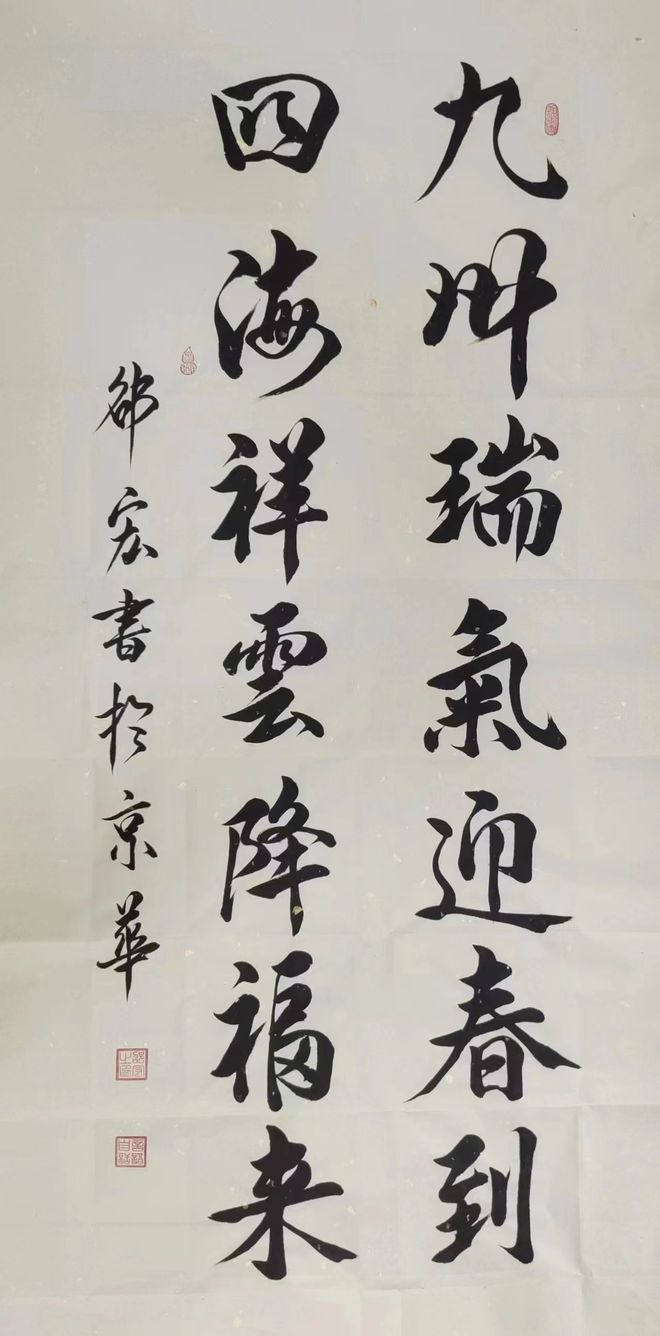 九州瑞氣迎春到
四海祥雲降福来
邵宏書於京華